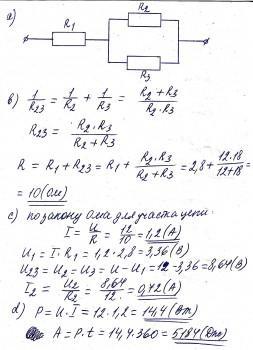 а)
R1
R2
R3
в) 1/R23 = 1/R2 + 1/R3 = (R2 + R3)/(R2 · R3)
R23 = (R2 · R3)/(R2 + R3)
R = R1 + R23 = R1 + (R2 · R3)/(R2 + R3) = 2,8 + (12·18)/(12+18) =
= 10 (Ом)
с) по закону Ома для участка цепи:
I = U/R = 12/10 = 1,2 (А)
U1 = I · R1 = 1,2 · 2,8 = 3,36 (В)
U23 = U2 = U3 = U − U1 = 12 − 3,36 = 8,64 (В)
I2 = U2/R2 = 8,64/12 = 0,72 (А)
d) P = U · I = 12 · 1,2 = 14,4 (Вт)
A = P · t = 14,4 · 360 = 5184 (Дж)